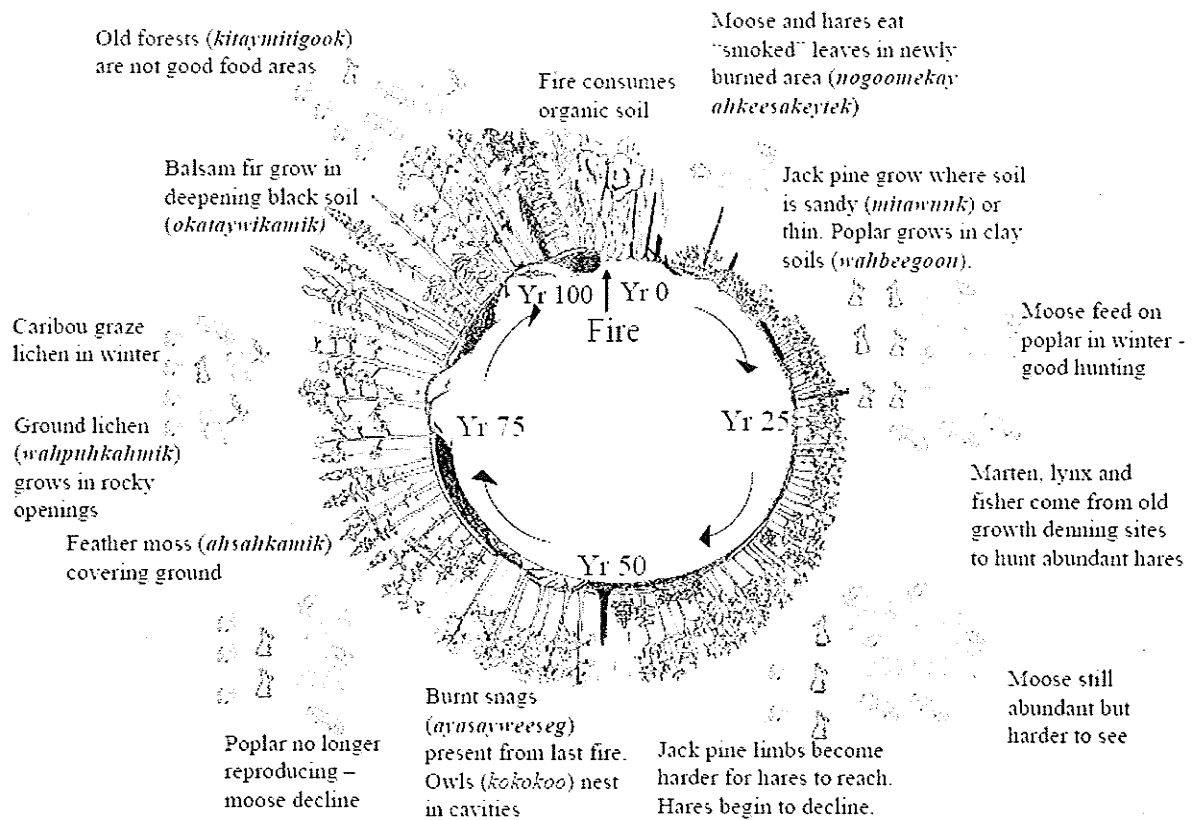 Old forests (kitaymitigook)
are not good food areas
Fire consumes
organic soil
Moose and hares eat
"smoked" leaves in newly
burned area (nogoomekay
ahkeesakeytek)
Balsam fir grow in
deepening black soil
(okataywikamik)
Jack pine grow where soil
is sandy (mitawunk) or
thin. Poplar grows in clay
soils (wahbeegoon).
Yr 100
Yr 0
Fire
Caribou graze
lichen in winter
Moose feed on
poplar in winter -
good hunting
Yr 75
Yr 25
Ground lichen
(wahpuhkahmik)
grows in rocky
openings
Marten, lynx and
fisher come from old
growth denning sites
to hunt abundant hares
Feather moss (ahsahkamik)
covering ground
Yr 50
Moose still
abundant but
harder to see
Burnt snags
(ayasayweeseg)
present from last fire.
Owls (kokokoo) nest
in cavities
Poplar no longer
reproducing –
moose decline
Jack pine limbs become
harder for hares to reach.
Hares begin to decline.